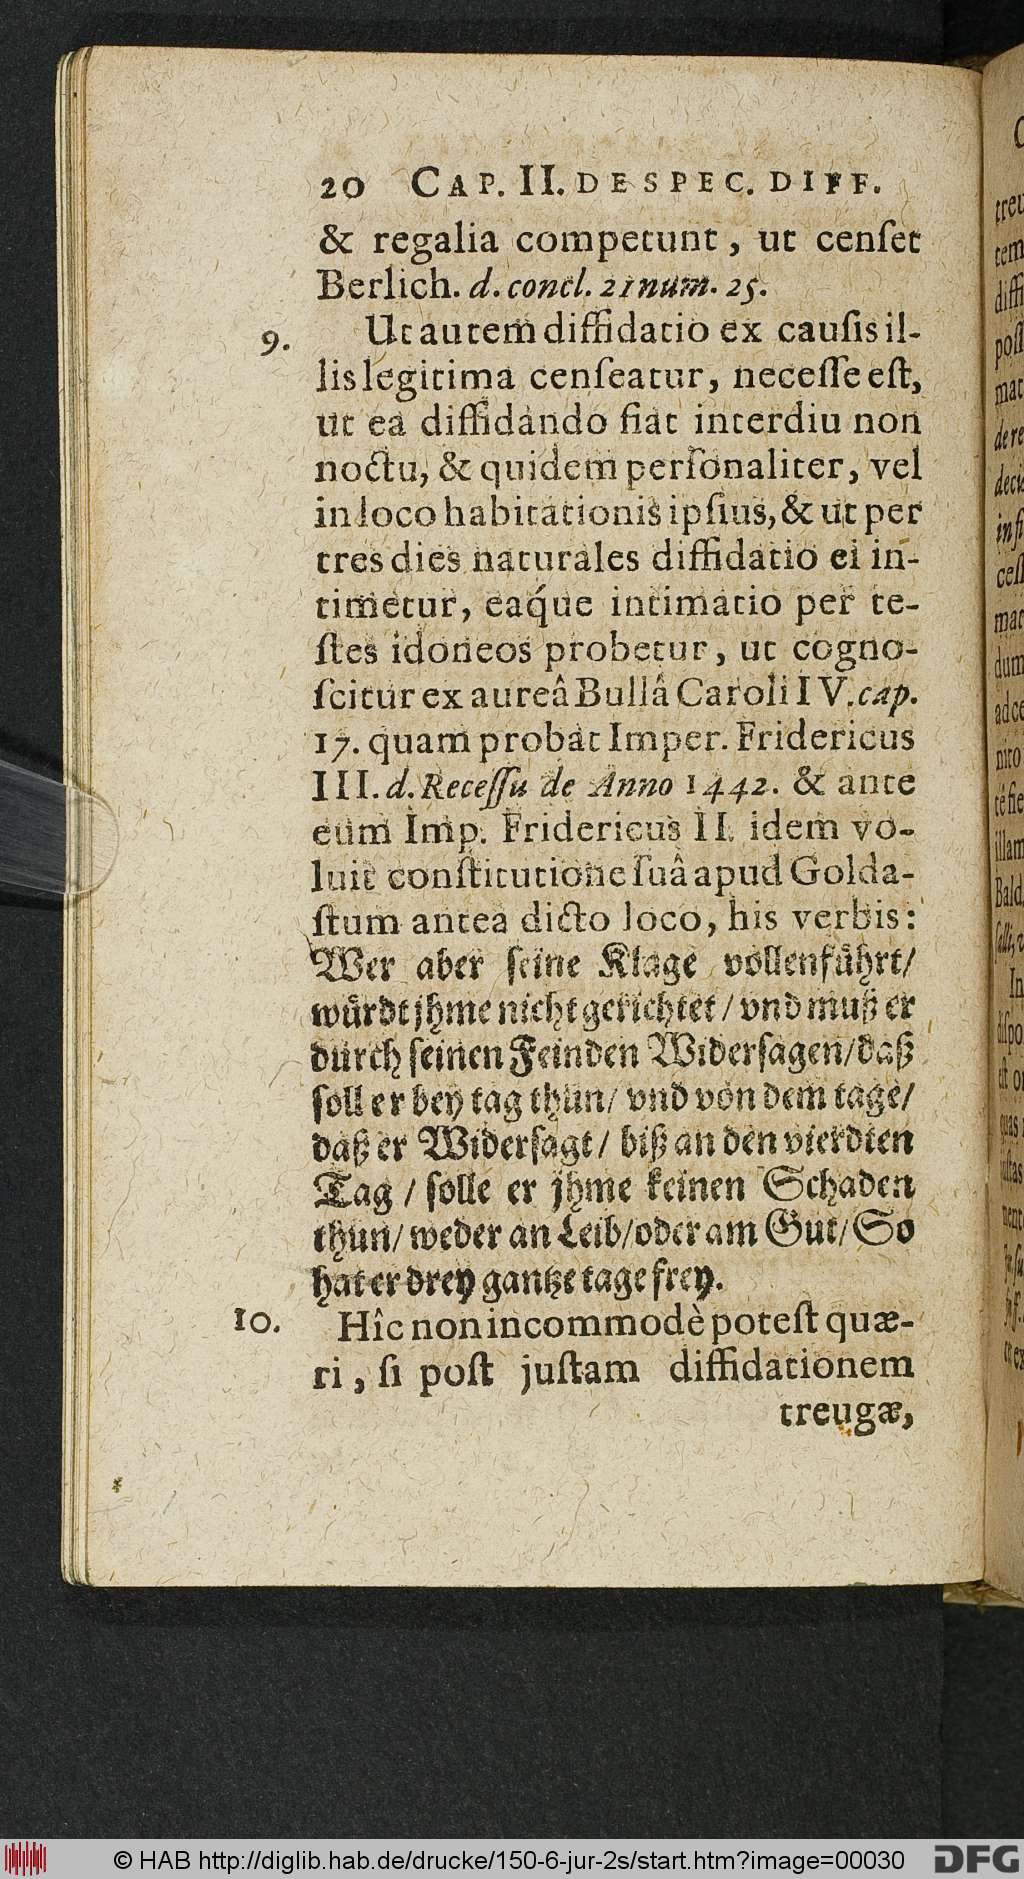 20 CAP. II. DE SPEC. DIFF.
& regalia competunt, ut cenſet
Berlich. d. concl. 21 num. 25.
9. Ut autem diffidatio ex cauſis il-
lis legitima cenſeatur, neceſſe eſt,
ut ea diffidando fiat interdiu non
noctu, & quidem perſonaliter, vel
in loco habitationis ipſius, & ut per
tres dies naturales diffidatio ei in-
timetur, eaq́ue intimatio per te-
ſtes idoneos probetur, ut cogno-
ſcitur ex aureâ Bullâ Caroli IV. cap.
17. quam probat Imper. Fridericus
III. d. Receſſu de Anno 1442. & ante
eum Imp. Fridericus II. idem vo-
luit conſtitutione ſuâ apud Golda-
ſtum antea dicto loco, his verbis:
Wer aber ſeine Klage vollenfuͤhrt/
wuͤrdt jhme nicht gerichtet/ vnd muß er
durch ſeinen Feinden Widerſagen/ daß
ſoll er bey tag thun/ vnd von dem tage/
daß er Widerſagt/ biß an den vierdten
Tag/ ſolle er jhme keinen Schaden
thun/ weder an Leib/ oder am Gut/ So
hat er drey gantze tage frey.
10. Hîc non incommodè poteſt quæ-
ri, ſi poſt juſtam diffidationem
treugæ,
© HAB http://diglib.hab.de/drucke/150-6-jur-2s/start.htm?image=00030
DFG